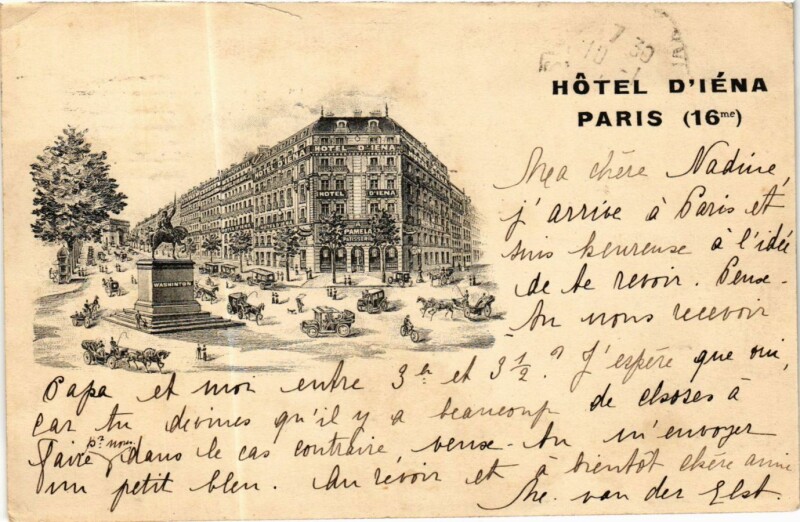 7 30
10
HÔTEL D'IÉNA
PARIS (16me)
HOTEL D'IÉNA
HOTEL D'IENA
HOTEL D'IENA
PAMELA
PATISSERIE
WASHINTON
Ma chère Nadine,
j'arrive à Paris et
suis heureuse à l'idée
de te revoir. Peux-
tu nous recevoir
Papa et moi entre 3h et 3 1/2? J'espère que oui,
car tu devines qu'il y a beaucoup de choses à
faire pr nous, dans le cas contraire, veux-tu m'envoyer
un petit bleu. Au revoir et à bientôt chère amie
van der Elst.